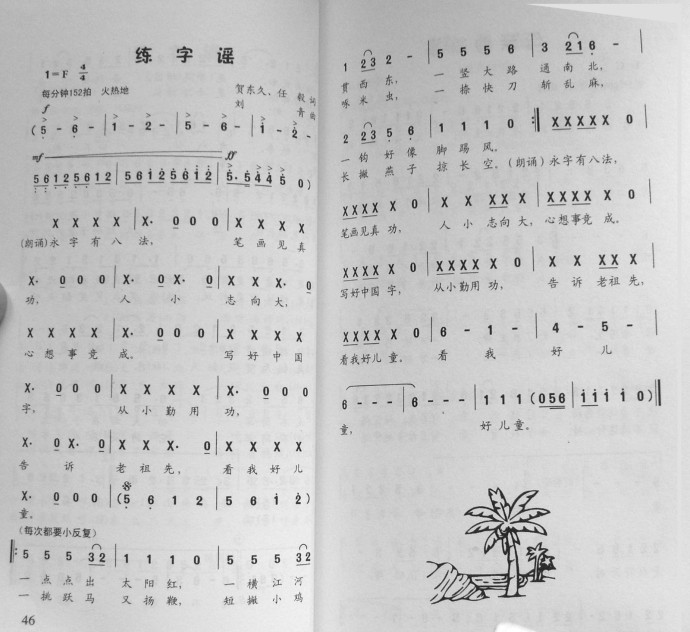 练字谣
1=F 4/4
每分钟152拍 火热地
贺东久、任毅词
刘青曲
f
(5 - 6 - | 1 - 2 - | 5 - 6 - | 1 - 2 -
mf ff
5612 5612 5612 5612 | 5612 5612 5612 5612 | 5·5 44 5 0)
X X X X | X· 0 0 0 | X X X X
(朗诵)永字有八法, 笔画见真
X· 0 0 0 | X· X X· X | X X X· 0 0
功, 人小志向大,
X X X X | X· 0 0 0 | X X X X
心想事竟成。 写好中国
X· 0 0 0 | X X X X | X· 0 0 0
字, 从小勤用功,
X X· | X X X· 0 0 | X X X X
告诉老祖先, 看我好儿
X· 0 0 0 | (5 6 1 2 | 5 6 1 2)
童,
(每次都要小反复)
5 5 5 32 | 1 1 1 0 | 5 5 5 32
一点点出 太阳红, 一横江河
一挑跃马 又扬鞭, 短撇小鸡
46
1 23 2 - | 5 5 5 6 | 3 21 6 -
贯西东, 一竖大路 通南北,
啄米虫, 一捺快刀 斩乱麻,
2 23 5 6 | 1 1 1 0 :| XX XX X 0
一钩好像 脚踢风。
长撇燕子 掠长空。(朗诵)永字有八法,
XX XX X 0 | X X XX X | XX XX X 0
笔画见真功, 人小志向大, 心想事竟成。
XX XX X 0 | XX XX X 0 | X X XX X
写好中国字, 从小勤用功, 告诉老祖先,
XX XX X 0 | 6 - 1 - | 4 - 5 -
看我好儿童, 看我好儿
6 - - - | 6 - - - | 1 1 1 (0 56 | 1 1 1 1 0)
童, 好儿童。